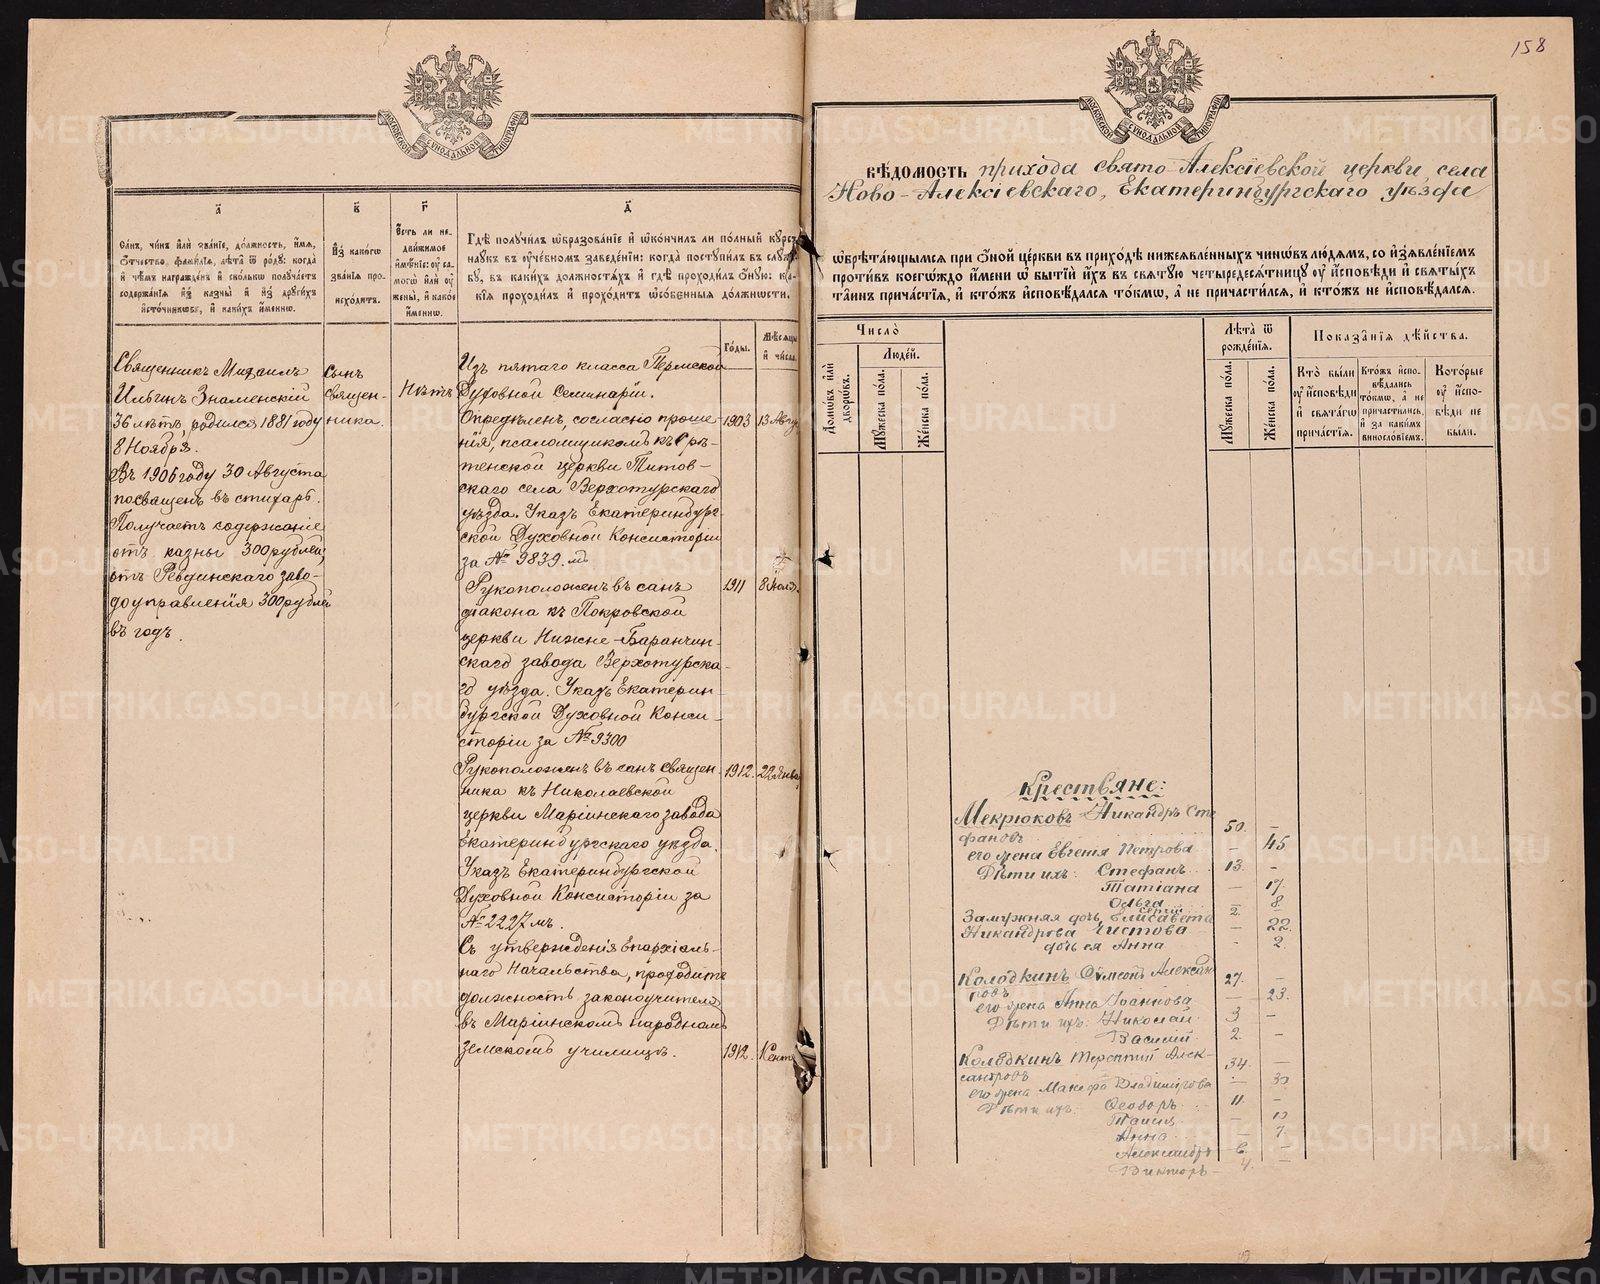 158
МОСКОВСКОЙ СѴНОДАЛЬНОЙ ТИПОГРАФІИ
МОСКОВСКОЙ СѴНОДАЛЬНОЙ ТИПОГРАФІИ
а҃
Санъ, чинъ или званіе, должность, имя,
отчество, фамилія, лѣта ѿ роду: когда
и чѣмъ награжденъ и сколькω получаетъ
содержанія изъ казны и изъ другихъ
источникωвъ, и какихъ именнω.
в҃
Изъ какогω
званія про-
исходитъ.
г҃
Есть ли не-
движимое
имѣніе: оу са-
могω или оу
жены, и какое
именнω.
д҃
Гдѣ получилъ ωбразованіе и ωкончилъ ли полный курсъ
наукъ въ оучебномъ заведеніи: когда поступилъ въ служ-
бу, въ какихъ должностяхъ и гдѣ проходилъ ωную: ка-
кія проходилъ и проходитъ ωсобенныя должности.
Годы.
Мѣсяцы
и числа.
Священникъ Михаилъ
Ильинъ Знаменскій
36 лѣтъ, родился 1881 году
8 Ноября.
Въ 1906 году 30 Августа
посвященъ въ стихарь.
Получаетъ содержаніе
отъ казны 300 рублей,
отъ Ревдинскаго заво-
доуправленія 300 рублей
въ годъ.
Сынъ
священ-
ника.
Нѣтъ
Изъ пятаго класса Пермской
Духовной Семинаріи.
Опредѣленъ, согласно проше- 1903 13 Авгу
нія, псаломщикомъ къ Срѣ-
тенской церкви Титов-
скаго села Верхотурскаго
уѣзда. Указъ Екатеринбург-
ской Духовной Консисторіи
за № 9839.мъ
Рукоположенъ въ санъ 1911 8
діакона къ Покровской
церкви Нижне-Баранчин-
скаго завода Верхотурска-
го уѣзда. Указъ Екатерин-
бургской Духовной Конси-
сторіи за № 9300
Рукоположенъ въ санъ священ- 1912. 22 Янва
ника къ Николаевской
церкви Маріинскаго завода
Екатеринбургскаго уѣзда.
Указъ Екатеринбургской
Духовной Консисторіи за
№ 2227мъ.
Съ утвержденія Епархіаль-
наго Начальства, проходитъ
должность законоучителя
въ Маріинскомъ народномъ
земскомъ училищѣ. 1912. 1 Сент
ВѢДОМОСТЬ прихода свято-Алексіевской церкви села
Ново-Алексіевскаго, Екатеринбургскаго уѣзда
ѡбрѣтающымся при ѻной церкви въ приходѣ нижеявленныхъ чинѡвъ людямъ, со изъявленіемъ
противъ коегѡждо имени ѡ бытіи ихъ въ святую четыредесятницу оу исповѣди и святыхъ
таинъ причастія, и ктожъ исповѣдался токмѡ, а не причастился, и ктожъ не исповѣдался.
Число
Домѡвъ или
дворѡвъ.
Людей.
Мужеска пола.
Женска пола.
Лѣта ѿ
рожденія.
Мужеска пола.
Женска пола.
Показанія дѣйства.
Кто были
оу исповѣди
и святагѡ
причастія.
Ктожъ испо-
вѣдались
токмѡ, а не
причастились,
и за какимъ
винословіемъ.
Которые
оу испо-
вѣди не
были.
Крестьяне:
Мекрюковъ Никандръ Сте 50. –
фановъ
его жена Евгенія Петрова – 45
Дѣти ихъ: Стефанъ 13. –
Татіана – 17.
Ольга – 8
Сергій 2. –
Замужняя дочь Елисавета
Никандрова Чистова – 22.
дочь ея Анна – 2.
Колодкинъ Сѵмеонъ Александ 27. –
ровъ
его жена Анна Іоаннова – 23.
Дѣти ихъ: Николай 3 –
Василій 2. –
Колодкинъ Терентій Алек- 34. –
сандровъ
его жена Владимірова – 30
Дѣти ихъ: Ѳеодоръ 11. –
Таисія – 10
Анна – 7.
Александръ 6. –
Викторъ – 4. –
METRIKI.GASO-URAL.RU